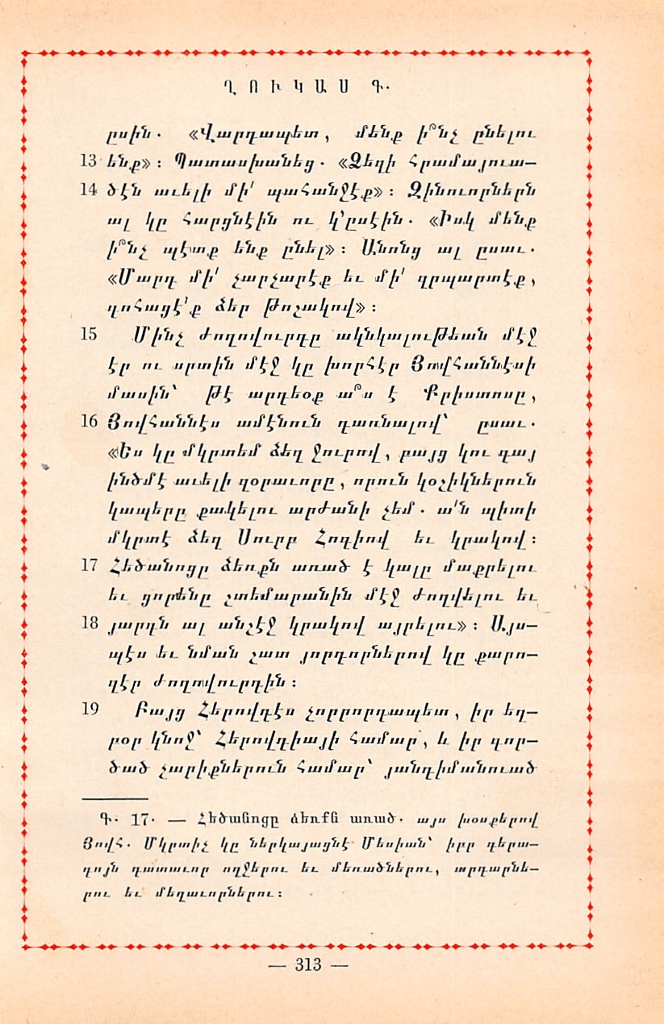 ՂՈՒԿԱՍ Գ.
ըսին. «Վարդապետ, մենք ի՞նչ ընելու
13 ենք»: Պատասխանեց. «Ձեզի Հրամայուա—
14 ծէն աւելի մի՛ պահանջէք»: Զինուորներն
ալ կը հարցնէին ու կ՚ըսէին. «Իսկ մենք
ի՞նչ պէտք ենք ընել»: Անոնց ալ ըսաւ.
«Մարդ մի՛ չարչարէք եւ մի՛ զրպարտէք,
գոհացէ՛ք ձեր թոշակով»:
15 Մինչ ժողովուրդը ակնկալութեան մէջ
էր ու սրտին մէջ կը խորհէր Յովհաննէսի
մասին՝ թէ արդեօք ա՞ս է Քրիստոսը,
16 Յովհաննէս ամէնուն դառնալով՝ ըսաւ.
«Ես կը մկրտեմ ձեզ ջուրով, բայց կու գայ
ինծմէ աւելի զօրաւորը, որուն կօշիկներուն
կապերը քակելու արժանի չեմ. ա՛ն պիտի
մկրտէ ձեզ Սուրբ Հոգիով եւ կրակով:
17 Հեծանոցը ձեռքն առած է կալը մաքրելու
եւ ցորենը շտեմարանին մէջ ժողվելու եւ
18 յարդն ալ անշէջ կրակով այրելու»: Այս—
պէս եւ նման շատ յորդորներով կը քարո—
զէր ժողովուրդին:
19 Բայց Հերովդէս չորրորդապետ, իր եղ—
բօր կնոջ՝ Հերովդիայի համար, և իր գոր—
ծած չարիքներուն համար՝ յանդիմանուած
Գ. 17. — Հեծանոցը ձեռքն առած. այս խօսքերով
Յովհ. Մկրտիչ կը ներկայացնէ Մեսիան՝ իբր գերա—
գոյն դատաւոր ողջերու եւ մեռածներու, արդարնե—
րու եւ մեղաւորներու:
— 313 —